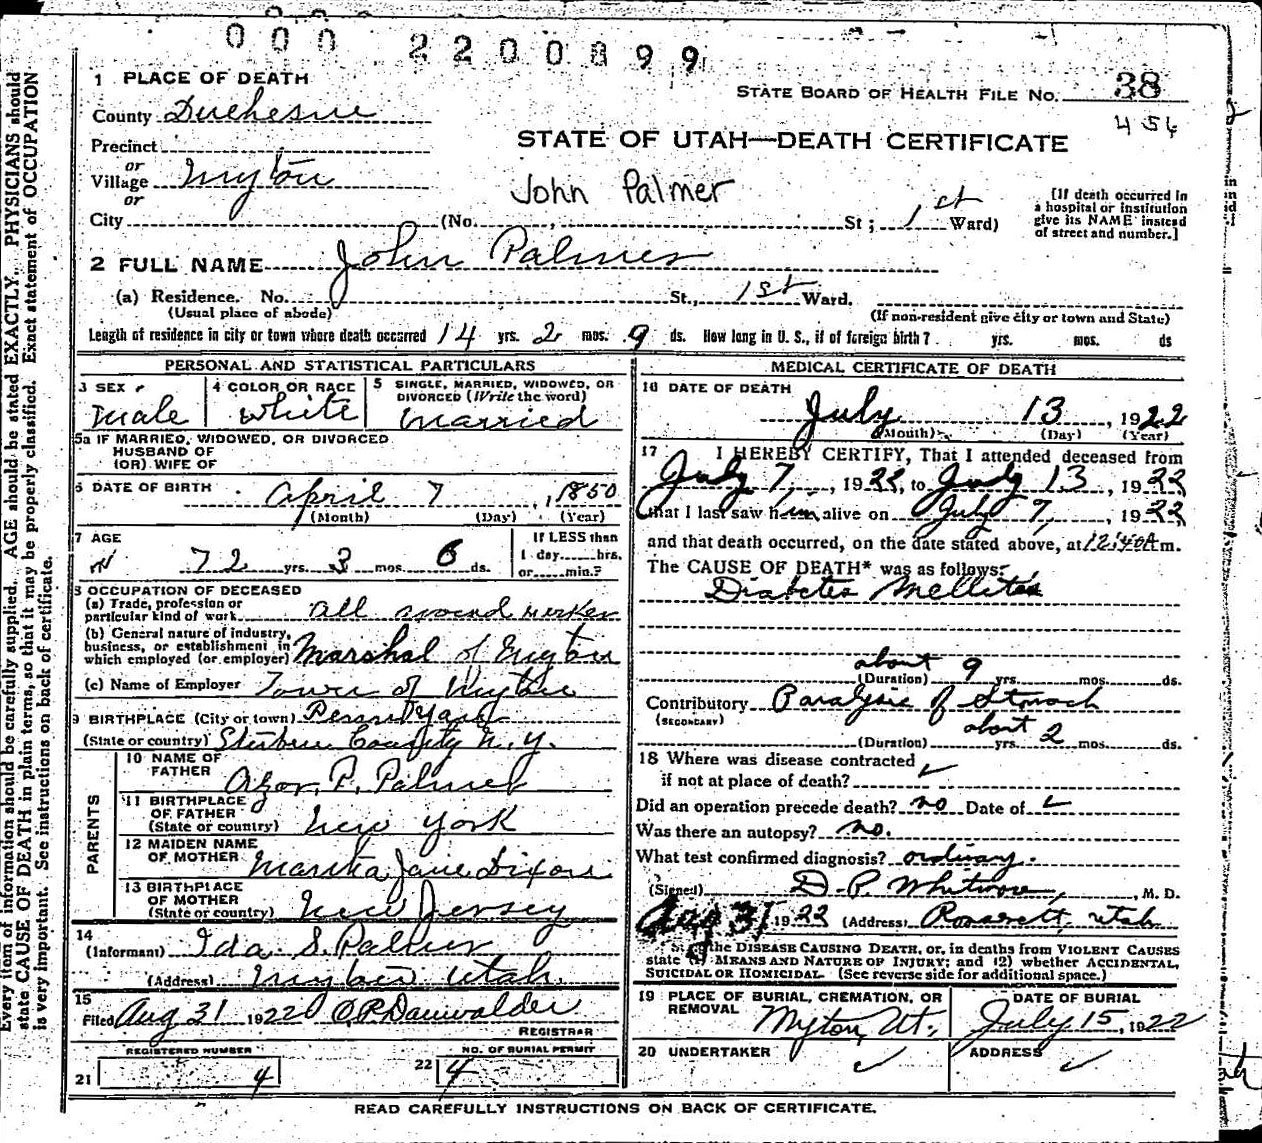 000 2200899
1 PLACE OF DEATH
STATE BOARD OF HEALTH FILE NO. 38
456
County Duchesne
STATE OF UTAH—DEATH CERTIFICATE
Precinct
or
Village Myton
or
John Palmer
City (No. St; 1st Ward)
[If death occurred in
a hospital or institution
give its NAME instead
of street and number.]
2 FULL NAME John Palmer
(a) Residence. No. St., 1st Ward.
(Usual place of abode)
(If non-resident give city or town and State)
Length of residence in city or town where death occurred 14 yrs. 2 mos. 9 ds. How long in U. S., if of foreign birth? yrs. mos. ds
PERSONAL AND STATISTICAL PARTICULARS
3 SEX
Male
4 COLOR OR RACE
White
5 SINGLE, MARRIED, WIDOWED, OR
DIVORCED (Write the word)
Married
5a IF MARRIED, WIDOWED, OR DIVORCED
HUSBAND OF
(OR) WIFE OF
6 DATE OF BIRTH April 7, 1850
(Month) (Day) (Year)
7 AGE
72 yrs. 3 mos. 6 ds.
If LESS than
1 day hrs.
or min.?
8 OCCUPATION OF DECEASED
(a) Trade, profession or
particular kind of work all around worker
(b) General nature of industry,
business, or establishment in
which employed (or employer) Marshal of Myton
(c) Name of Employer Town of Myton
9 BIRTHPLACE (City or town)
(State or country) Steuben County N.Y.
PARENTS
10 NAME OF
FATHER P. Palmer
11 BIRTHPLACE
OF FATHER
(State or country) New York
12 MAIDEN NAME
OF MOTHER Martha Jane Dixon
13 BIRTHPLACE
OF MOTHER
(State or country) New Jersey
14
(Informant) Ida S. Palmer
(Address) Myton Utah
15
Filed Aug 31 1922 REGISTRAR
REGISTERED NUMBER
21 4
NO. OF BURIAL PERMIT
22 4
MEDICAL CERTIFICATE OF DEATH
16 DATE OF DEATH
July 13, 1922
(Month) (Day) (Year)
17 I HEREBY CERTIFY, That I attended deceased from
July 7, 1922, to July 13, 1922
that I last saw him alive on July 7, 1922
and that death occurred, on the date stated above, at 12:40A m.
The CAUSE OF DEATH* was as follows:
Diabetes Mellitus
about 9
(Duration) yrs. mos. ds.
Contributory Paralysis of Stomach
(SECONDARY)
about 2
(Duration) yrs. mos. ds.
18 Where was disease contracted
if not at place of death?
Did an operation precede death? no Date of
Was there an autopsy? no.
What test confirmed diagnosis? ordinary.
(Signed) D. P. Whitmore, M. D.
Aug 31 1922 (Address) Roosevelt, Utah
the DISEASE CAUSING DEATH, or, in deaths from VIOLENT CAUSES
state MEANS AND NATURE OF INJURY; and (2) whether ACCIDENTAL,
SUICIDAL OR HOMICIDAL. (See reverse side for additional space.)
19 PLACE OF BURIAL, CREMATION, OR
REMOVAL Myton, Ut,
DATE OF BURIAL
July 15, 1922
20 UNDERTAKER
ADDRESS
READ CAREFULLY INSTRUCTIONS ON BACK OF CERTIFICATE.
Every item of information should be carefully supplied. AGE should be stated EXACTLY. PHYSICIANS should
state CAUSE OF DEATH in plain terms, so that it may be properly classified. Exact statement of OCCUPATION
is very important. See instructions on back of certificate.